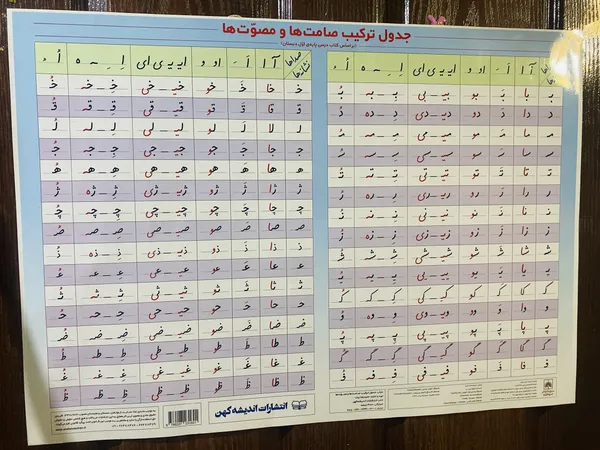 جدول ترکیب صامت‌ها و مصوّت‌ها
(بر اساس کتاب درسی پایه‌ی اوّل دبستان)
صداها نشانه‌ها آ ا اَ ـَ او و ایـ یـ ی ای اِ ـِ ـه ه اُ ـُ
ب با بَ بو بیـ ـ بی بِـ ـ به بُ
د دا دَ دو دیـ ـ دی دِ ـ ده دُ
مـ ما مَ مو میـ ـ می مِـ ـ مه مُ
سـ سا سَ سو سیـ ـ سی سِـ ـ سه سُ
تـ تا تَ تو تیـ ـ تی تِـ ـ ته تُ
ر را رَ رو ریـ ـ ری رِ ـ ره رُ
نـ نا نَ نو نیـ ـ نی نِـ ـ نه نُ
ز زا زَ زو زیـ ـ زی زِ ـ زه زُ
شـ شا شَ شو شیـ ـ شی شِـ ـ شه شُ
یـ یا یَ یو ییـ ـ یی یِـ ـ یه یُ
کـ کا کَ کو کیـ ـ کی کِـ ـ که کُ
و وا وَ وو ویـ ـ وی وِ ـ وه وُ
پـ پا پَ پو پیـ ـ پی پِـ ـ په پُ
گـ گا گَ گو گیـ ـ گی گِـ ـ گه گُ
فـ فا فَ فو فیـ ـ فی فِـ ـ فه فُ
صداها نشانه‌ها آ ا اَ ـَ او و ایـ یـ ی ای اِ ـِ ـه ه اُ ـُ
خـ خا خَ خو خیـ ـ خی خِـ ـ خه خُ
قـ قا قَ قو قیـ ـ قی قِـ ـ قه قُ
لـ لا لَ لو لیـ ـ لی لِـ ـ له لُ
جـ جا جَ جو جیـ ـ جی جِـ ـ جه جُ
هـ ها هَ هو هیـ ـ هی هِـ ـ هه هُ
ژ ژا ژَ ژو ژیـ ـ ژی ژِ ـ ژه ژُ
چـ چا چَ چو چیـ ـ چی چِـ ـ چه چُ
صـ صا صَ صو صیـ ـ صی صِـ ـ صه صُ
ذ ذا ذَ ذو ذیـ ـ ذی ذِ ـ ذه ذُ
عـ عا عَ عو عیـ ـ عی عِـ ـ عه عُ
ثـ ثا ثَ ثو ثیـ ـ ثی ثِـ ـ ثه ثُ
حـ حا حَ حو حیـ ـ حی حِـ ـ حه حُ
ضـ ضا ضَ ضو ضیـ ـ ضی ضِـ ـ ضه ضُ
ط طا طَ طو طیـ ـ طی طِـ ـ طه طُ
غـ غا غَ غو غیـ ـ غی غِـ ـ غه غُ
ظ ظا ظَ ظو ظیـ ـ ظی ظِـ ـ ظه ظُ
انتشارات اندیشه کهن